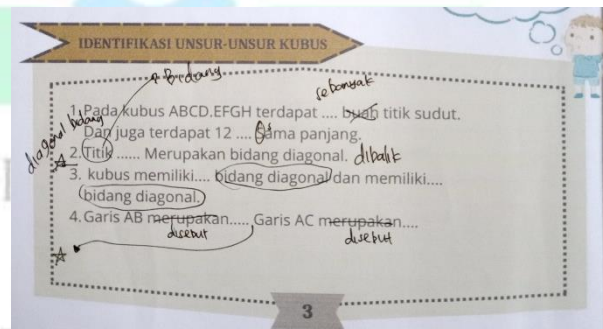 IDENTIFIKASI UNSUR-UNSUR KUBUS
Bidang
sebanyak
1. Pada kubus ABCD.EFGH terdapat .... buah titik sudut.
Dan juga terdapat 12 .... Sama panjang.
diagonal bidang
2. Titik ...... Merupakan bidang diagonal. dibalik
3. kubus memiliki.... bidang diagonal dan memiliki....
bidang diagonal.
4. Garis AB merupakan..... Garis AC merupakan....
disebut disebut
3